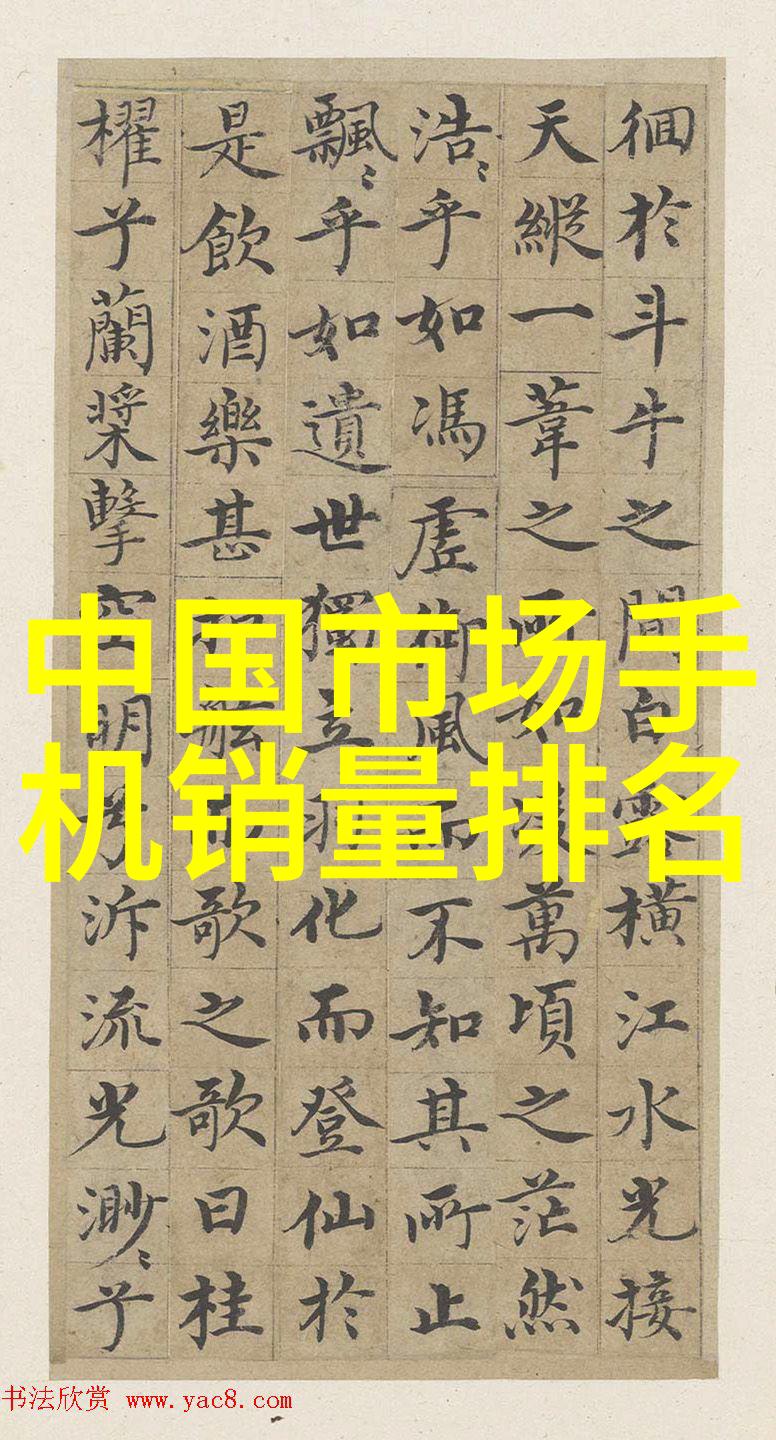 徊於斗牛之間白露橫江水光接
天縱一葦之所如凌萬頃之茫然
浩〻乎如馮虛御風而不知其所止
飄〻乎如遺世獨立羽化而登仙於
是飲酒樂甚扣舷而歌之歌曰桂
櫂兮蘭槳擊空明兮泝流光渺〻兮
中国市场手
机销量排名
书法欣赏 www.yac8.com